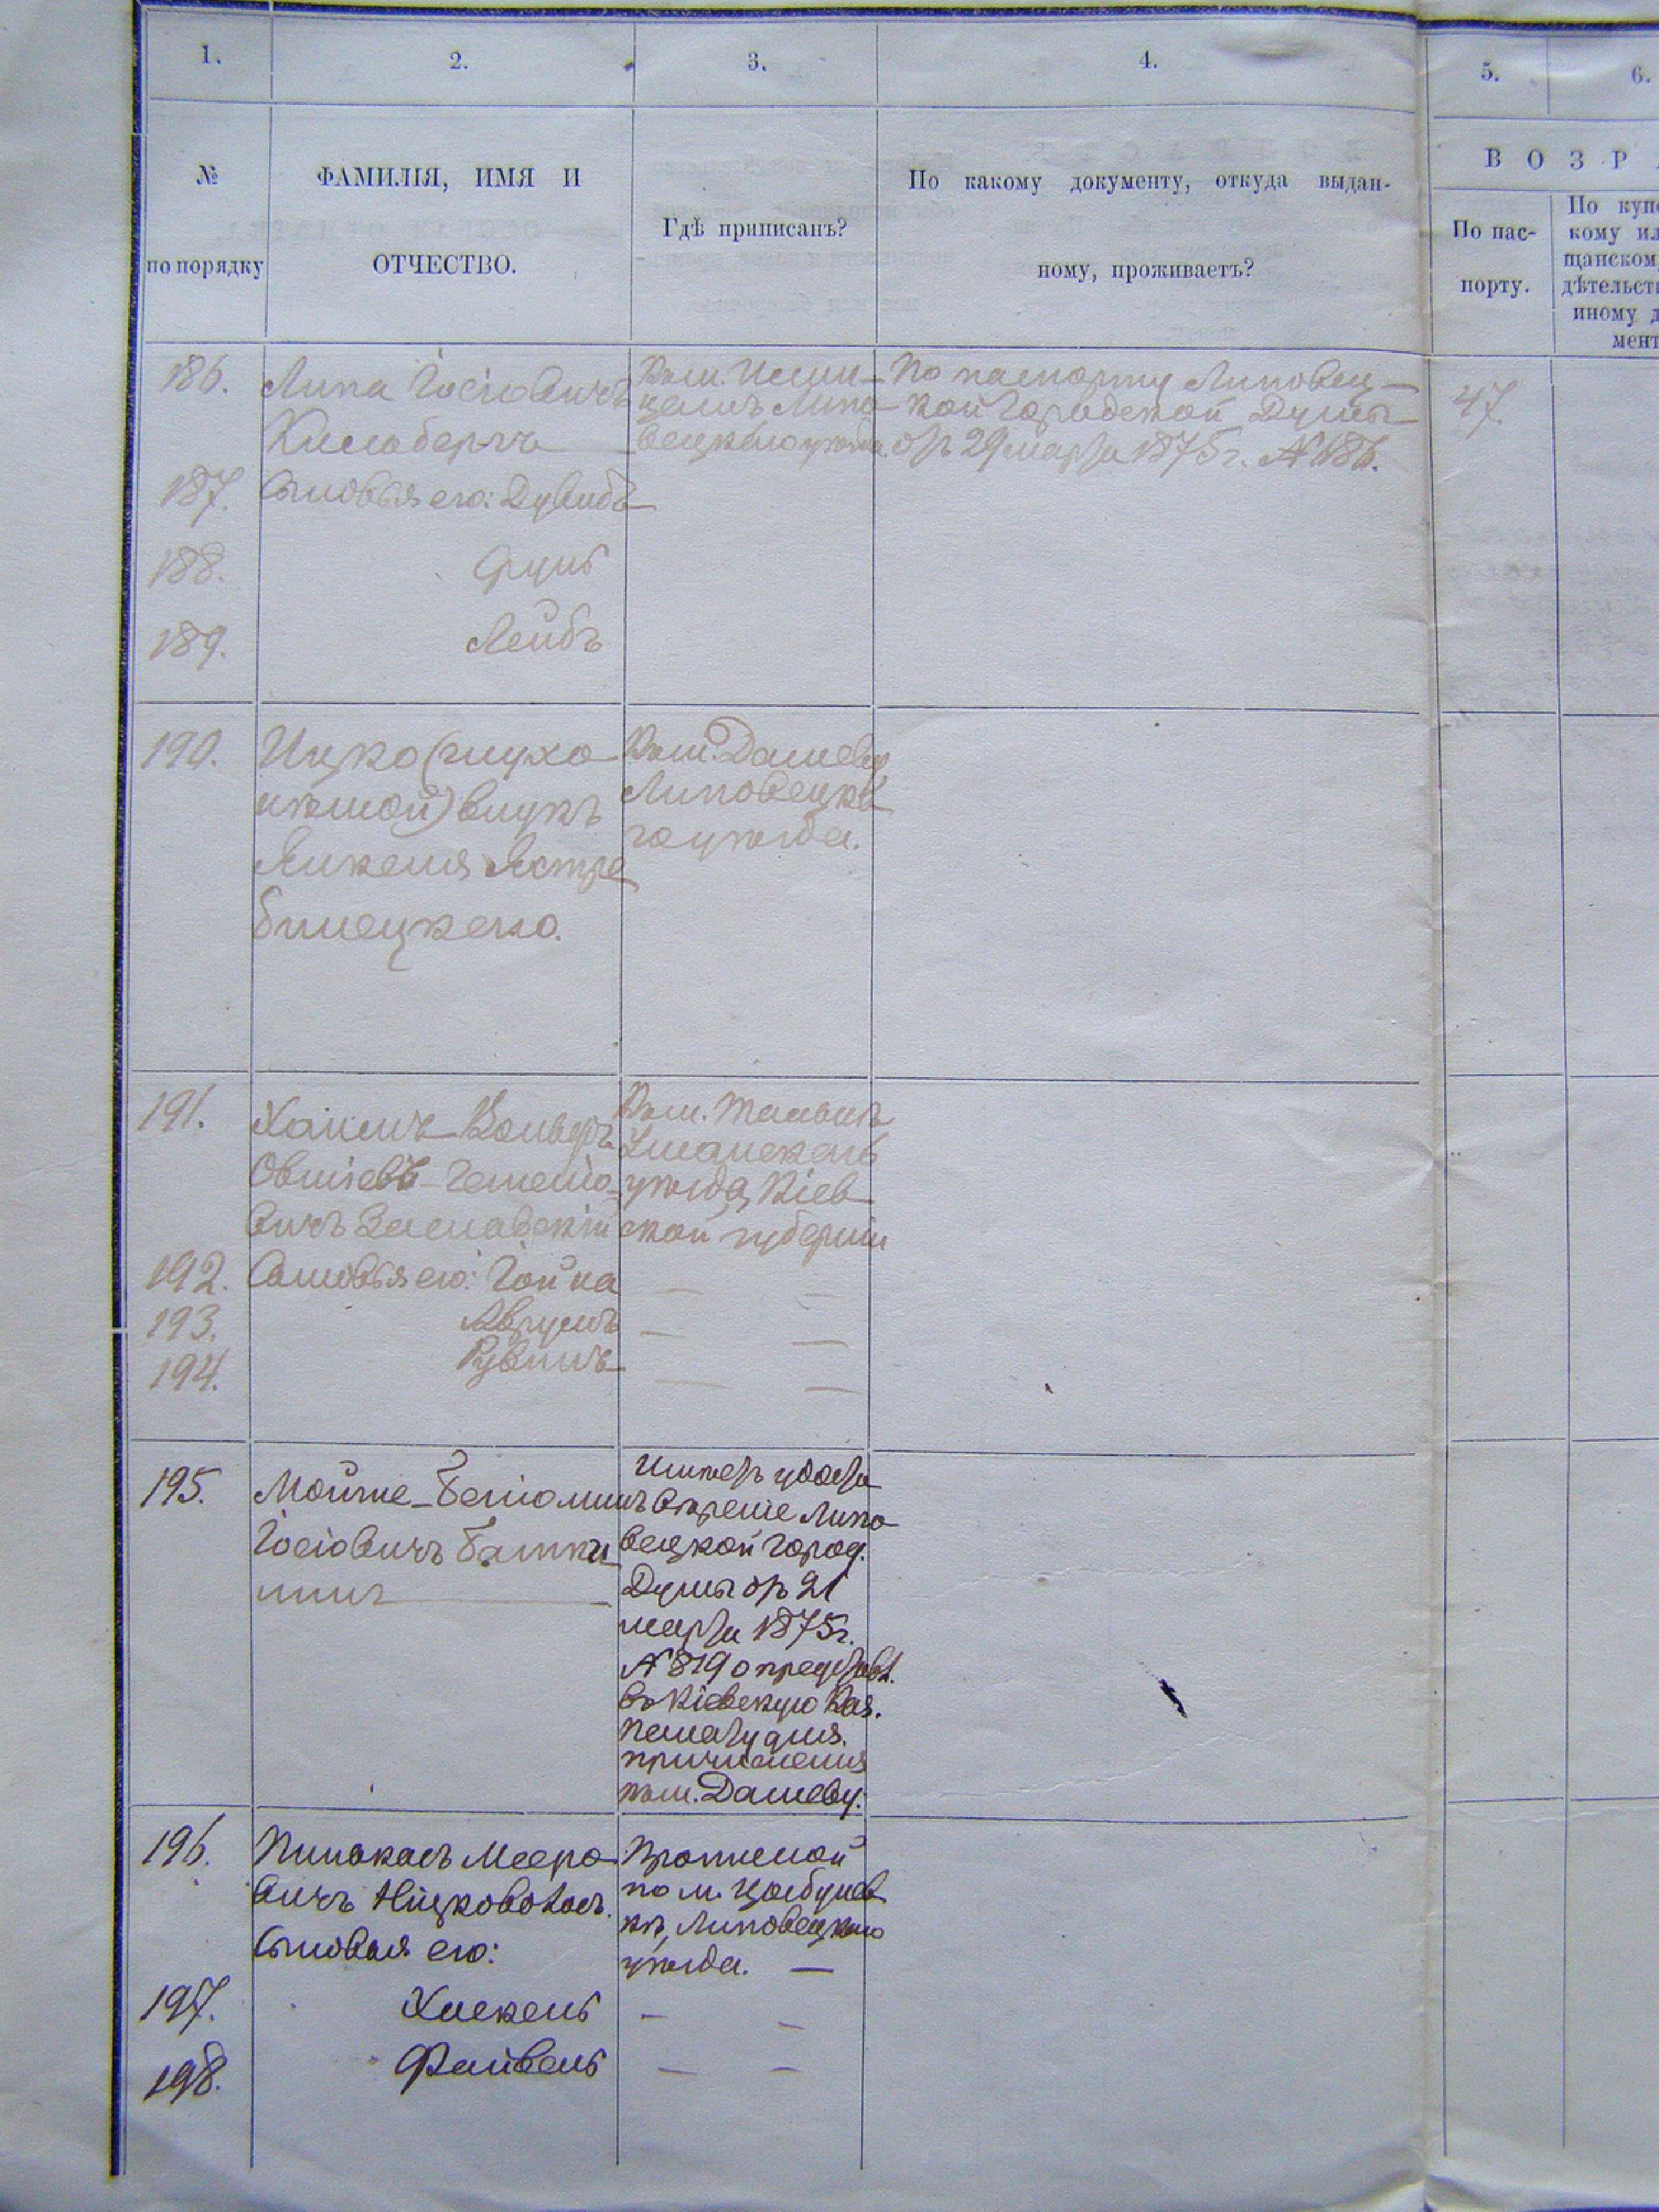 1. 2. 3. 4. 5. 6.
№
по порядку
ФАМИЛІЯ, ИМЯ И
ОТЧЕСТВО.
Гдѣ приписанъ?
По какому документу, откуда выдан-
ному, проживаетъ?
ВОЗРА
По пас-
порту.
По купе
кому ил
щанском
дѣтельст
иному д
мент
186. Липа Іосіовичъ
Кельбергъ
Къ м. Ильин-
цамъ Липо-
вецкаго уѣзда.
По паспорту Липовец-
кой Городской Думы
отъ 29 марта 1875 г. №
47.
187. Сыновья его: Дувидъ
188. Сруль
189. Лейбъ
190. Ицко (глухо-
нѣмой) внукъ
Янкеля Ястре
бинецкаго.
Къ м. Дашеву
Липовецка
го уѣзда.
191. Хаимъ-Вольфъ
Овшіевъ-
вичъ Заславскій
Къ м. Тальное
Уманскаго
уѣзда, Кіев
ской губерніи
192. Сыновья его: Іойна — —
193. Аврумъ — —
194. Рувинъ — —
195. Мойше-Беніоминъ
Іосіовичъ
Имѣетъ удосто
вѣреніе Липо
вецкой город.
Думы отъ 21
марта 1875 г.
№ 819 о представл.
въ Кіевскую Каз.
Палату для
причисленія
къ м. Дашеву.
196. Пинхасъ Мееро
вичъ
Сыновья его:
по м. Цыбулев
кѣ, Липовецкаго
уѣзда. —
197. Хаскель — —
198. Файвель — —